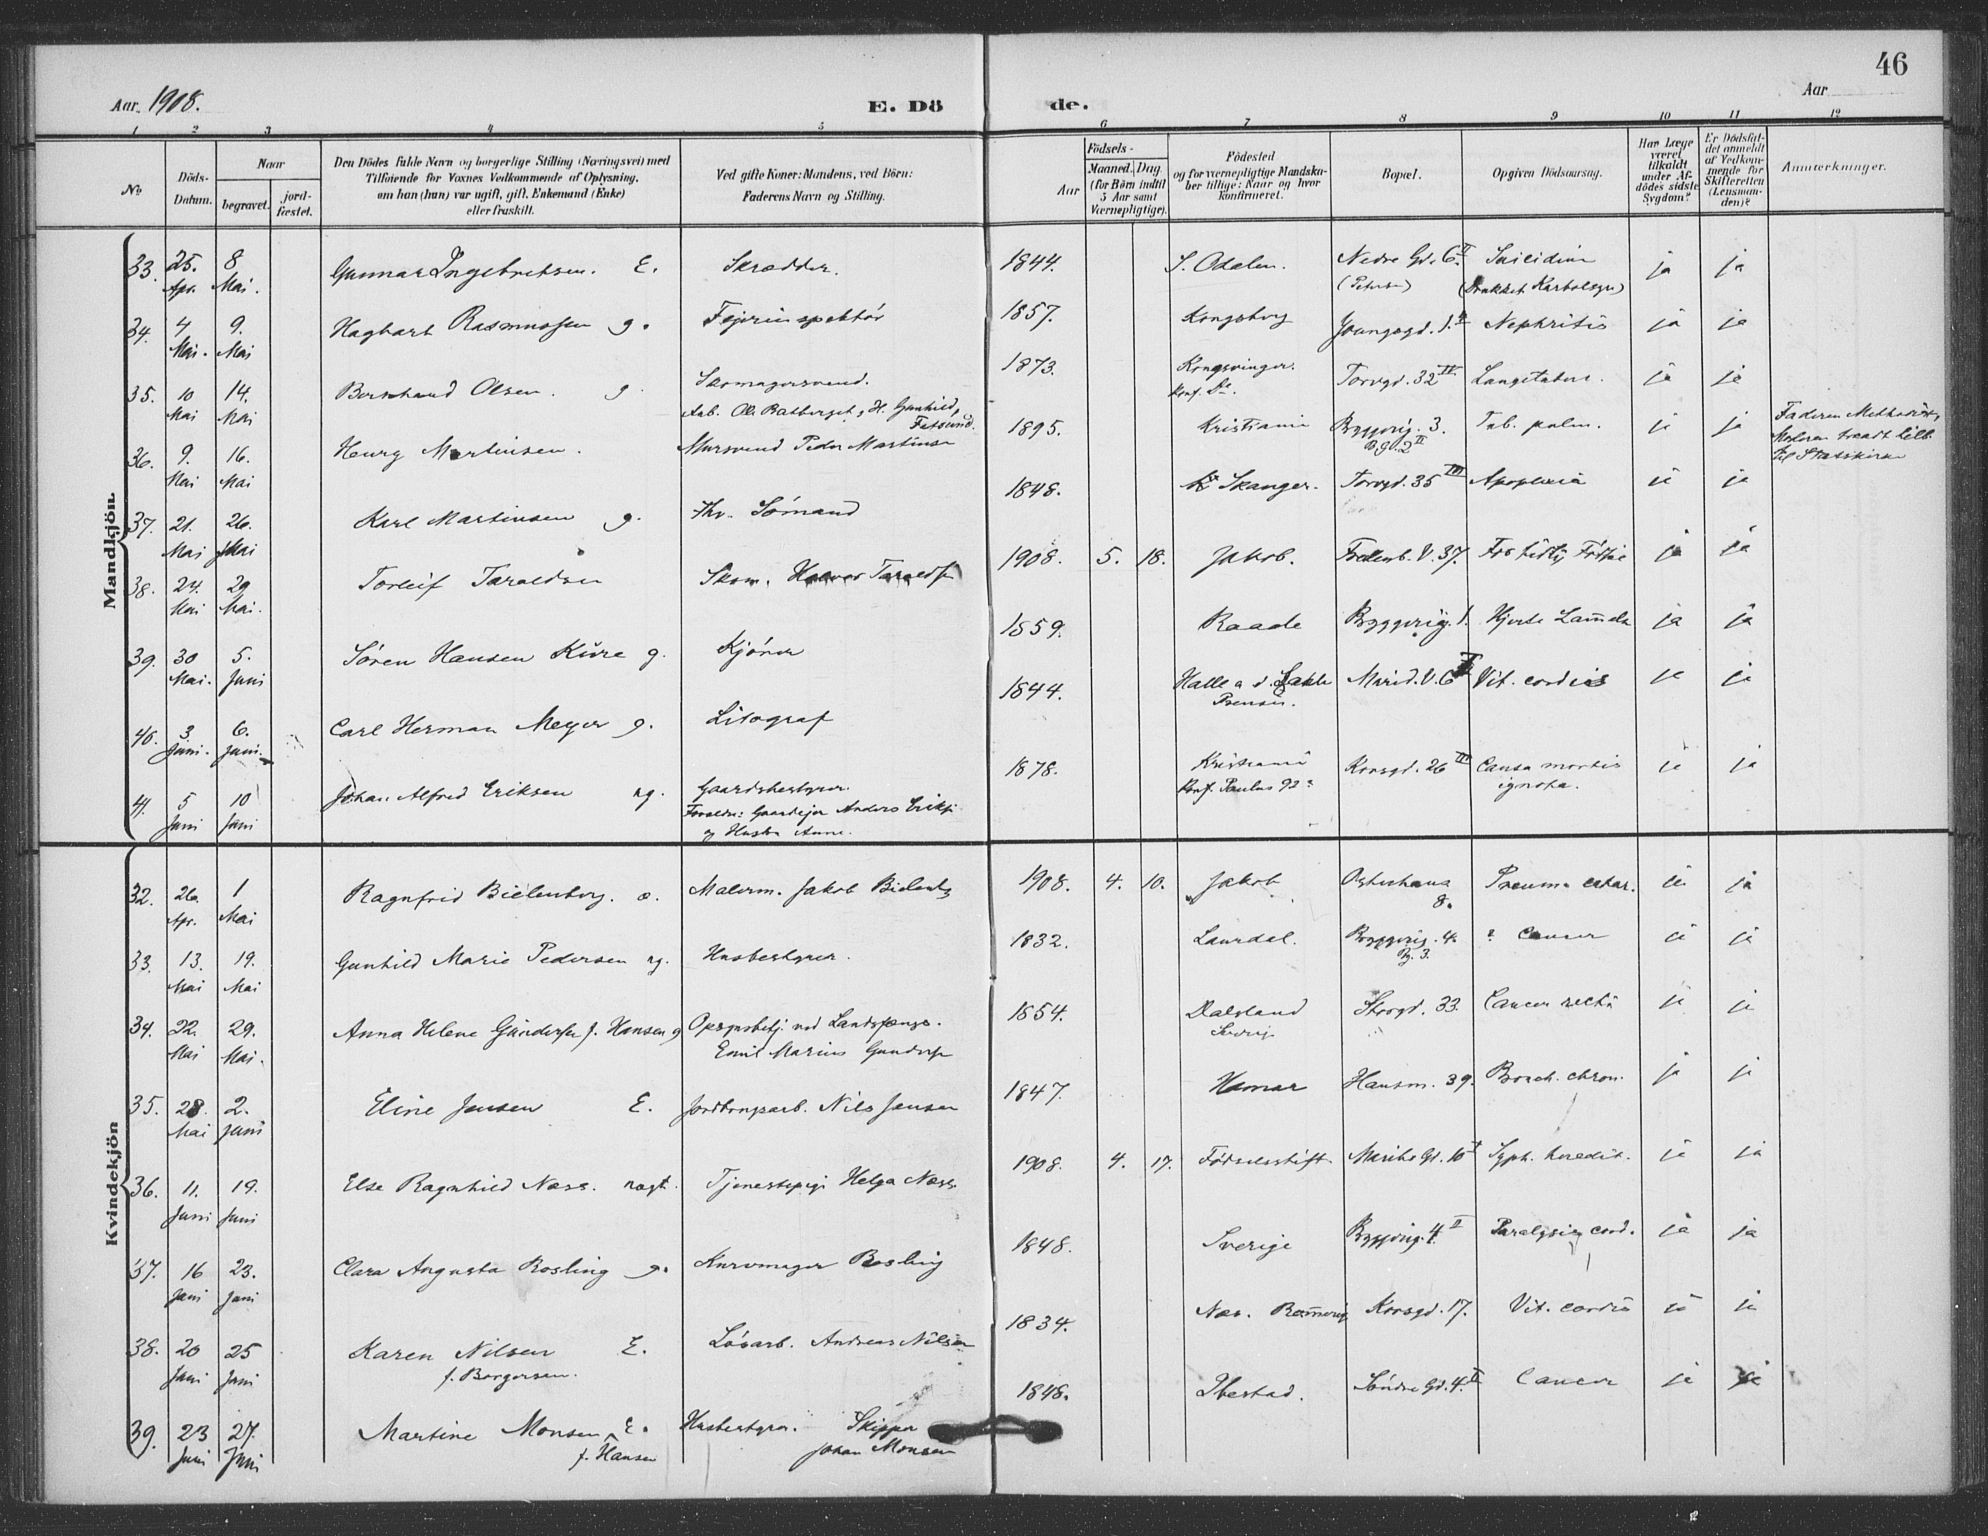 46
Aar 1908.
E. Dö
de.
Aar
1 2 3 4 5 6 7 8 9 10 11 12
No
Döds-
Datum.
Naar
begravet.
jord-
fæstet.
Den Dödes fulde Navn og borgerlige Stilling (Næringsvei) med
Tilföiende for Voxnes Vedkommende af Oplysning,
om han (hun) var ugift, gift, Enkemand (Enke)
eller fraskilt.
Ved gifte Koner: Mandens, ved Börn:
Faderens Navn og Stilling.
Födsels-
Aar
Maaned. Dag.
(for Börn indtil
5 Aar samt
Værnepligtige).
Födested
og for værnepligtige Mandska-
ber tillige: Naar og hvor
konfirmeret.
Bopæl.
Opgiven Dödsaarsag.
Har Læge
været
tilkaldt
under Af-
dödes sidste
Sygdom?
Er Dödsfal-
det anmeldt
af Vedkom-
mende for
Skifteretten
(Lensman-
den)?
Anmærkninger.
Mandkjön.
33. 25. Apr. 8 Mai. Gunnar Ingebretsen. E. Skrædder. 1844. S. Odalen. Nedre Gd. 6 II Suicidium ja ja
(Drukket Karbolsyre)
34. 4 Mai. 9. Mai Hagbart Rasmussen g. Fejerinspektör 1857. Kongsberg Youngsgd. 1. II Nephritis ja ja
35. 10 Mai 14. Mai Bernhard Olsen. g. Skomagersvend. 1873. Kongsvinger. Torvgd. 32 IV Lungetuberc. ja ja
Konf. Do.
36. 9. Mai 16. Mai Henry Martinsen. Arb. Ole Ratberget, H. Gunhild, Fetsund.
Mursvend Peder Martinsen 1895. Kristiania Byggverig. 3. Tub. pulm. ja ja Faderen Methodist,
Bg. 2 II
Moderen traadt tilb.
til Statskirken
37. 21. Mai 26. Mai Karl Martinsen g. Fhv. Sömand 1848. Skanger. Torvgd. 35 III Apoplexia ja ja
38. 24. Mai 29 Mai. Torleif Taraldsen Skom. Taraldsen 1908. 5. 18. Jakob. Fredensb. V. 37. For tidlig Födsel ja ja
39. 30 Mai. 5. Juni Sören Hansen Kure g. Kjörer 1859. Raade Byggverig. 1. Hjerte Lammelse ja ja
40. 3 Juni. 6. Juni. Carl Herman Meyer g. Litograf 1844. Halle a. d. Saale Marid. V. 6 Vit. cordis ja ja
Preusen.
41. 5 Juni 10 Juni Johan Alfred Eriksen ug. Gaardsbestyrer. 1878. Kristiania Korsgd. 26 III Causa mortis ja ja
Forældre: Gaardejer Anders Eriksen
Konf. Paulus 92 ignota.
og Hustru Anne.
Kvindekjön
32. 26. Apr. 1 Mai Ragnfrid Bielenberg. æ. Malerm. Jakob Bielenberg 1908. 4. 10. Jakob Osterhaus 8. Pneum. catar. ja ja
33. 13. Mai 19. Mai Gunhild Marie Pedersen ug. Husbestyrer. 1832. Laurdal. Byggverig. 4. ? Cancer ja ja
Bg. 3.
34. 22. Mai 29. Mai. Anna Helene Gundersen f. Hansen g Opsynsbetj. ved Landsfængs. 1854. Dalsland Storgd. 33. Cancer recti ja ja
Emil Marius Gundersen Sverig
35. 28. Mai 2. Juni Eline Jensen E. Jordbrugsarb. Nils Jensen 1847. Hamar Hausm. 39. Bronch. chron. ja ja
36. 11. Juni 19. Juni Else Ragnhild Næss. uægt. Tjenestepige Helga Næss. 1908. 4. 17. Födselsstift. Maribo Gd. 10 I Syph. heredit. ja ja
37. 16 Juni 23. Juni Clara Augusta Rosling g. Kurvmager Rosling 1848. Sverige Byggverig. 4 II Paralysis cord. ja ja
38. 20 Juni 25 Juni Karen Nilsen E. Lösarb. Andreas Nilsen 1834. Næs. Romerig Korsgd. 17. Vit. cordis ja ja
f. Borgersen.
39. 23 Juni 27. Juni Martine Monsen E. Husbestyrer. Skipper 1848. Ibestad. Söndre Gd. 4. II Cancer ja ja
f. Hansen Johan Monsen